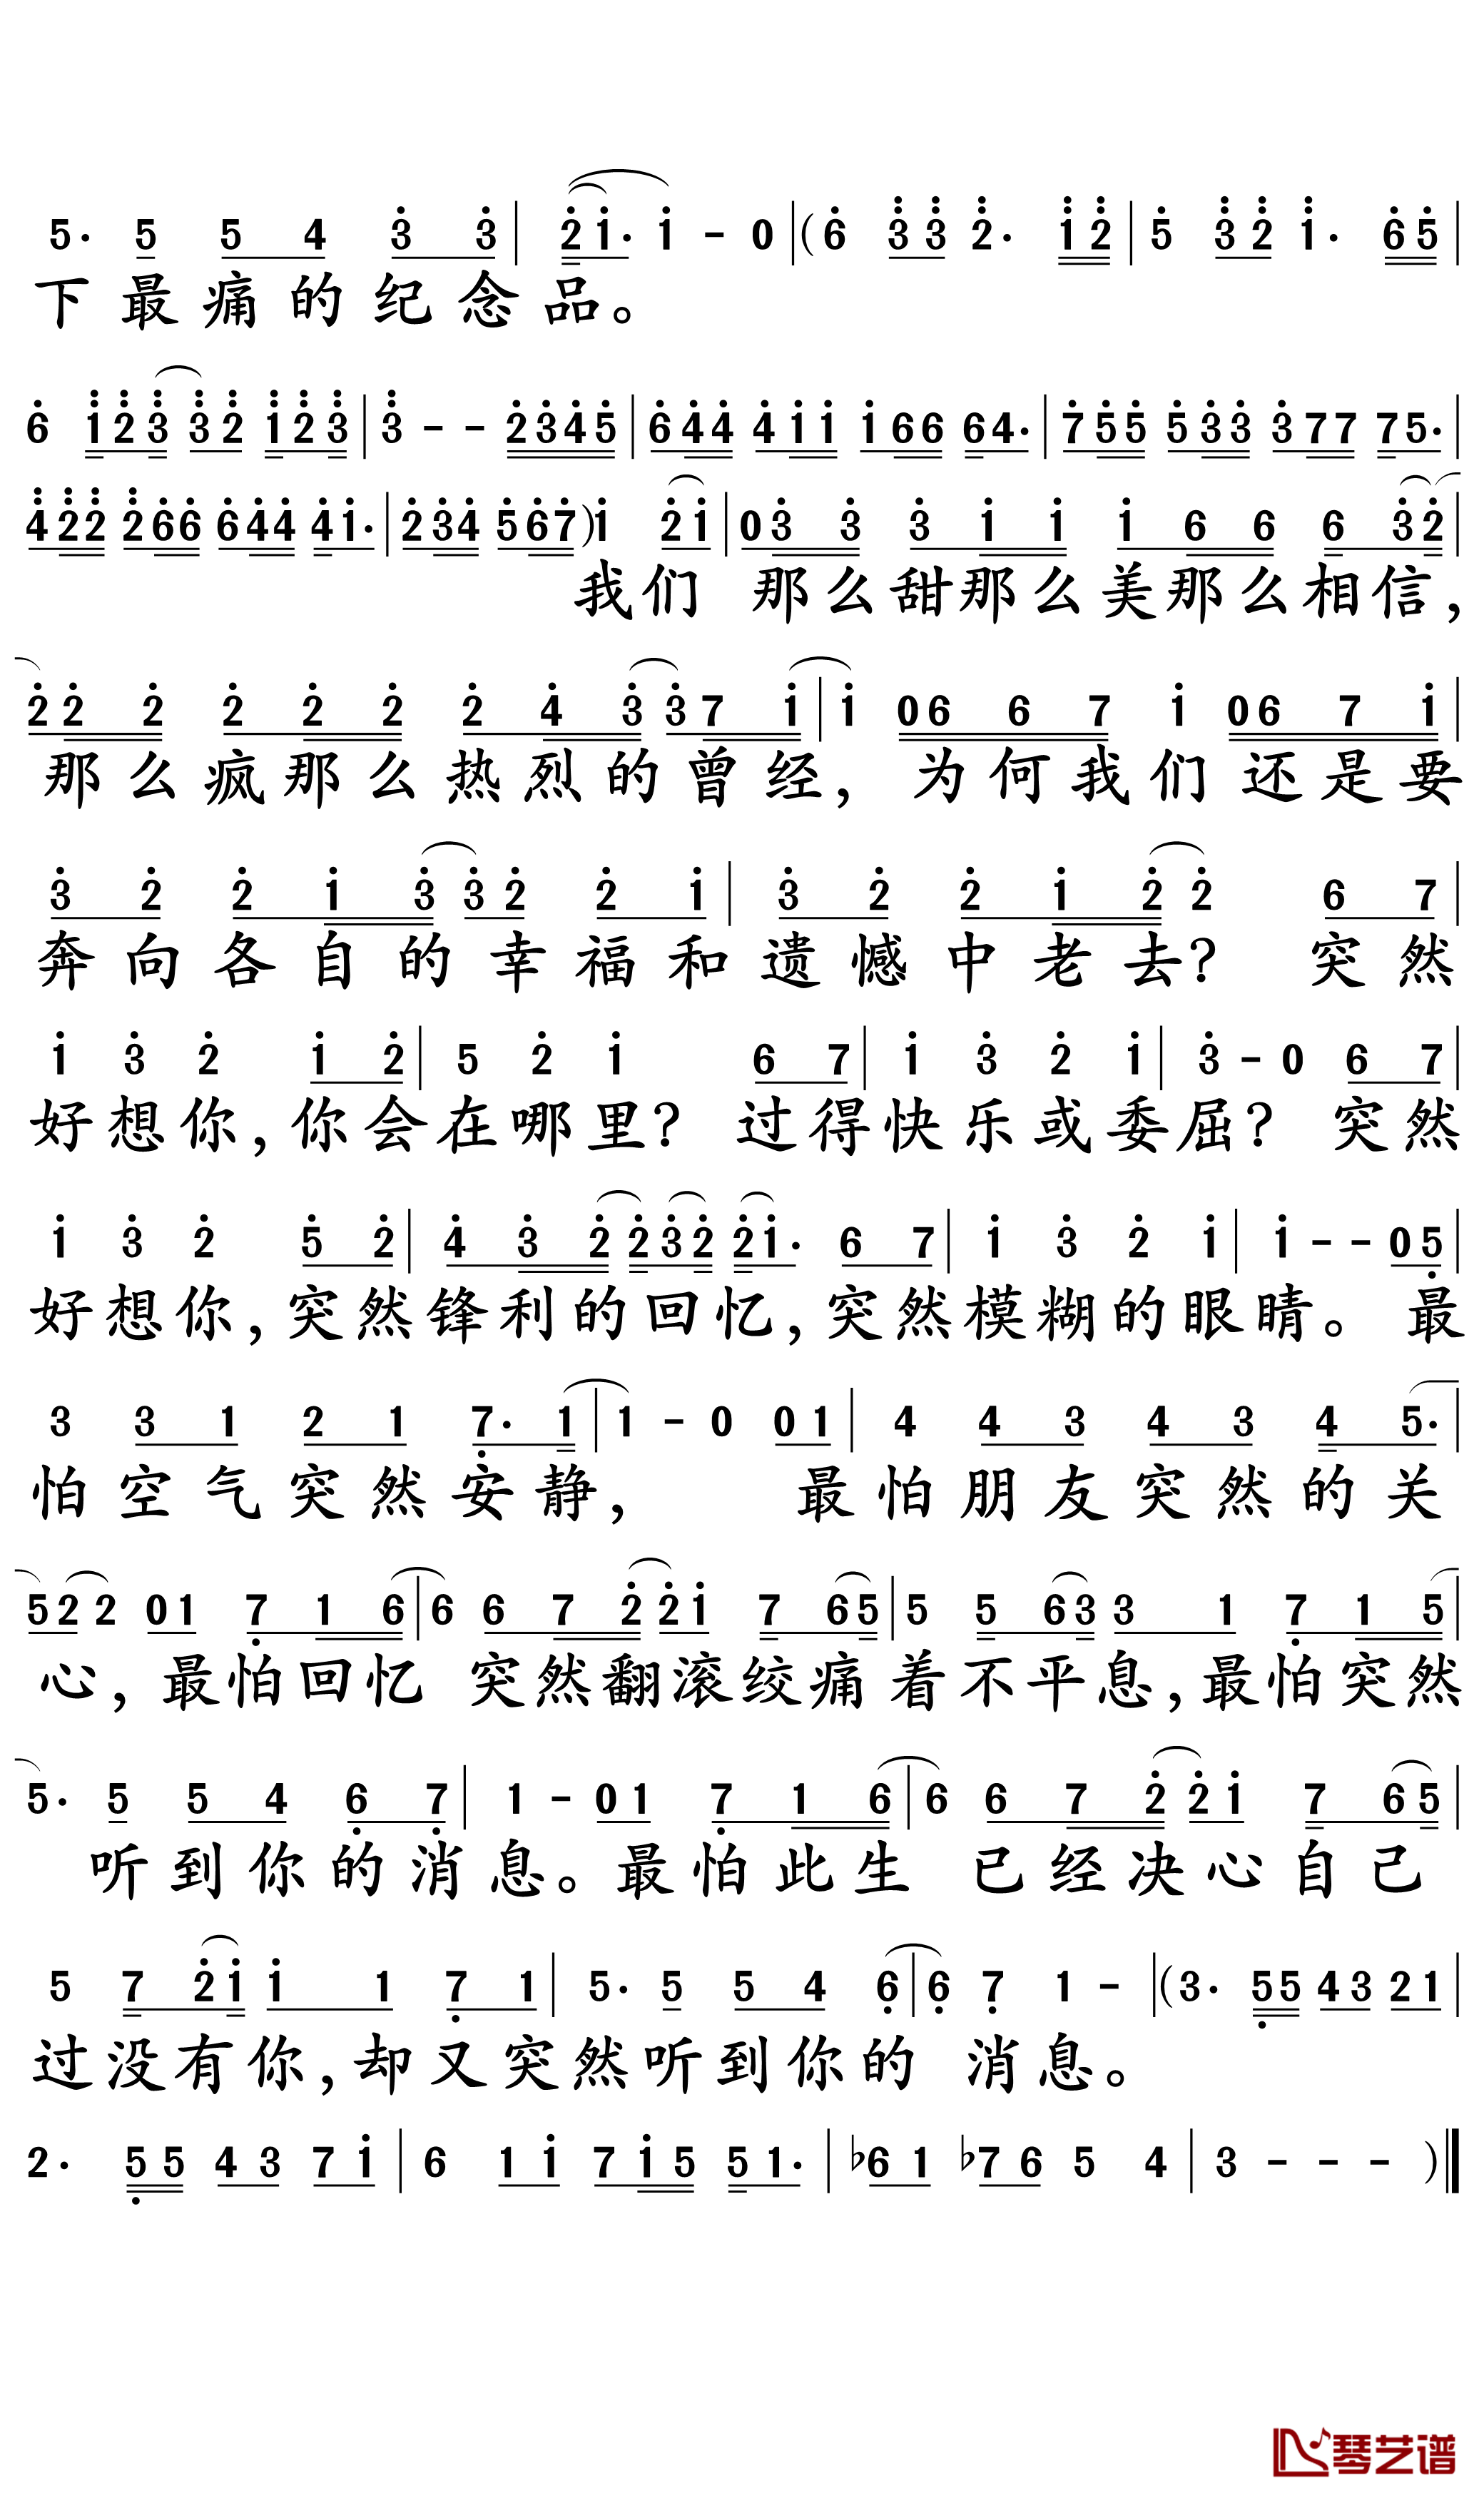 5· 5 5 4 3 3 | 2 1· 1 - 0 | (6 3 3 2· 1 2 | 5 3 2 1· 6 5 |
下最痛的纪念品。
6 1 2 3 3 2 1 2 3 | 3 - - 2 3 4 5 | 6 4 4 4 1 1 1 6 6 6 4· | 7 5 5 5 3 3 3 7 7 7 5· |
4 2 2 2 6 6 6 4 4 4 1· | 2 3 4 5 6 7) 1 2 1 | 0 3 3 3 1 1 1 6 6 6 3 2 |
我们 那么甜那么美那么相信,
2 2 2 2 2 2 2 4 3 3 7 1 | 1 0 6 6 7 1 0 6 7 1 |
那么疯那么热烈的曾经, 为何我们还是要
3 2 2 1 3 3 2 2 1 | 3 2 2 1 2 2 6 7 |
奔向各自的幸福和遗憾中老去? 突然
1 3 2 1 2 | 5 2 1 6 7 | 1 3 2 1 | 3 - 0 6 7 |
好想你,你会在哪里? 过得快乐或委屈? 突然
1 3 2 5 2 | 4 3 2 2 3 2 2 1· 6 7 | 1 3 2 1 | 1 - - 0 5 |
好想你,突然锋利的回忆,突然模糊的眼睛。 最
3 3 1 2 1 7· 1 | 1 - 0 0 1 | 4 4 3 4 3 4 5· |
怕空气突然安静, 最怕朋友突然的关
5 2 2 0 1 7 1 6 | 6 6 7 2 2 1 7 6 5 | 5 5 6 3 3 1 7 1 5 |
心,最怕回忆 突然翻滚绞痛着不平息,最怕突然
5· 5 5 4 6 7 | 1 - 0 1 7 1 6 | 6 6 7 2 2 1 7 6 5 |
听到你的消息。最怕此生 已经决心自己
5 7 2 1 1 1 7 1 | 5· 5 5 4 6 | 6 7 1 - | (3· 5 5 4 3 2 1 |
过没有你,却又突然听到你的 消息。
2· 5 5 4 3 7 1 | 6 1 1 7 1 5 5 1· | ♭6 1 ♭7 6 5 4 | 3 - - - )
琴艺谱